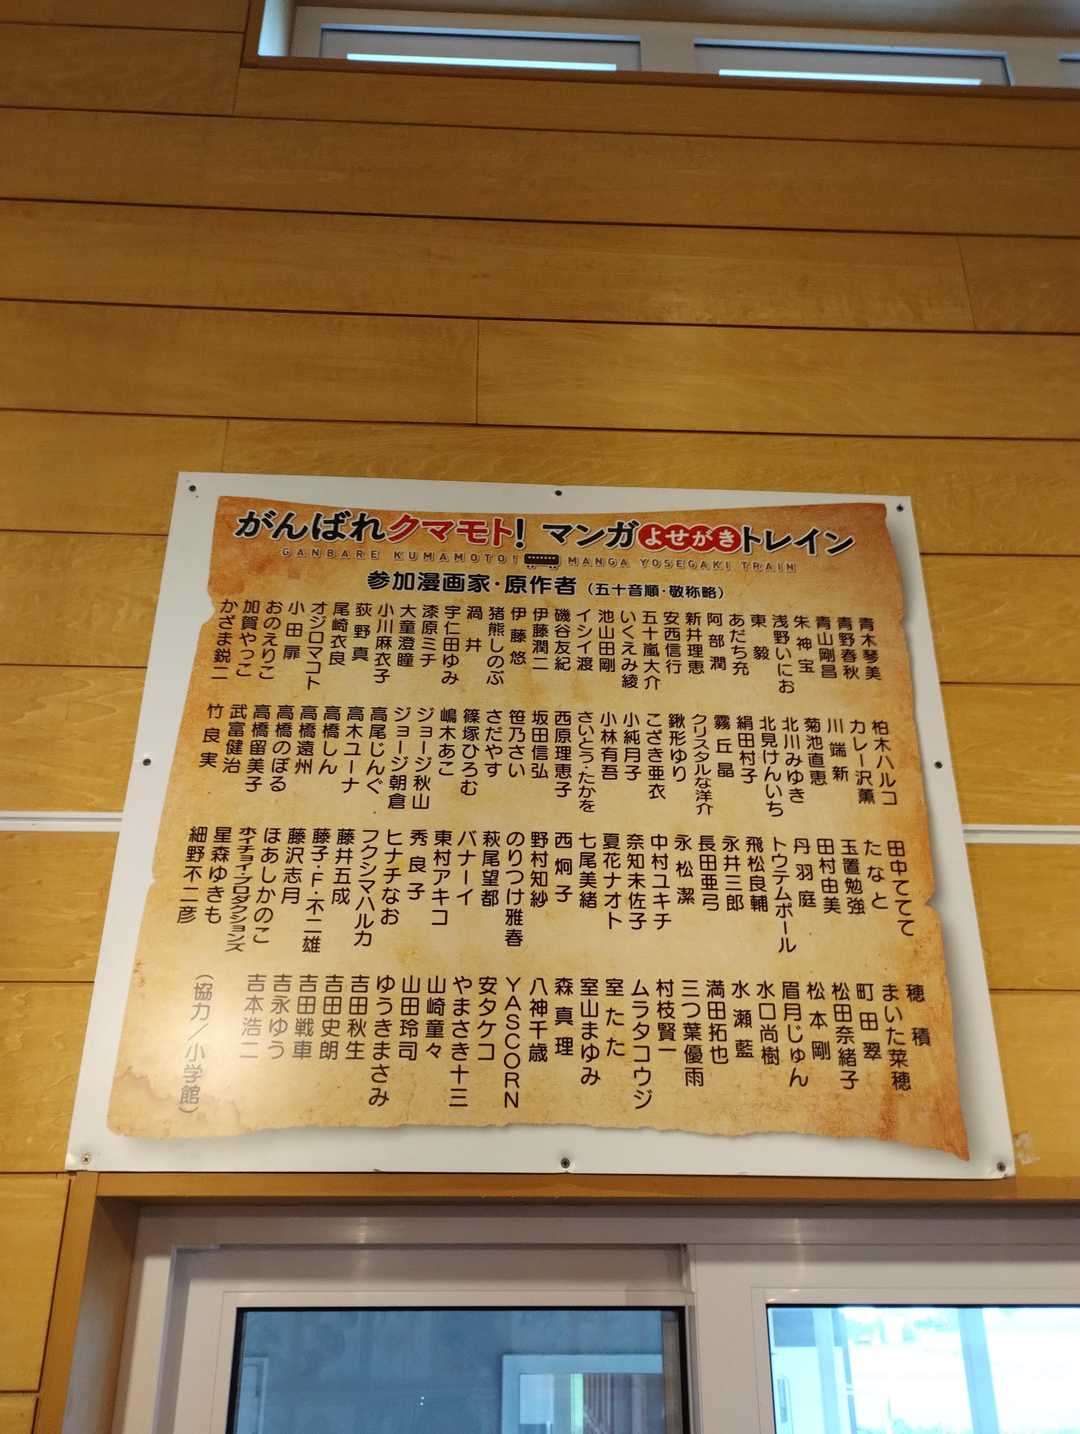 がんばれクマモト! マンガよせがきトレイン
GANBARE KUMAMOTO! MANGA YOSEGAKI TRAIN
参加漫画家・原作者（五十音順・敬称略）
青木琴美
青野春秋
青山剛昌
朱神宝
浅野いにお
東毅
あだち充
阿部潤
新井理恵
安西信行
五十嵐大介
いくえみ綾
池山田剛
イシイ渡
磯谷友紀
伊藤潤二
伊藤悠
猪熊しのぶ
渦井
宇仁田ゆみ
漆原ミチ
大童澄瞳
小川麻衣子
荻野真
尾崎衣良
オジロマコト
小田扉
おのえりこ
加賀やっこ
かざま鋭二
柏木ハルコ
カレー沢薫
川端新
菊池直恵
北川みゆき
北見けんいち
絹田村子
霧丘晶
クリスタルな洋介
鍬形ゆり
こざき亜衣
小純月子
小林有吾
さいとう・たかを
西原理恵子
坂田信弘
笹乃さい
さだやす
篠塚ひろむ
嶋木あこ
ジョージ秋山
ジョージ朝倉
高尾じんぐ
高木ユーナ
高橋しん
高橋遠州
高橋のぼる
高橋留美子
武富健治
竹良実
田中ててて
たなと
玉置勉強
田村由美
丹羽庭
トウテムポール
飛松良輔
永井三郎
長田亜弓
永松潔
中村ユキチ
奈知未佐子
夏花ナオト
七尾美緒
西炯子
野村知紗
のりつけ雅春
萩尾望都
バナーイ
東村アキコ
秀良子
ヒナチなお
フクシマハルカ
藤井五成
藤子・F・不二雄
藤沢志月
ほあしかのこ
ホイチョイ・プロダクションズ
星森ゆきも
細野不二彦
穂積
まいた菜穂
町田翠
松田奈緒子
松本剛
眉月じゅん
水口尚樹
水瀬藍
満田拓也
三つ葉優雨
村枝賢一
ムラタコウジ
室たた
室山まゆみ
森真理
八神千歳
YASCORN
安タケコ
やまさき十三
山崎童々
山田玲司
ゆうきまさみ
吉田秋生
吉田史朗
吉田戦車
吉永ゆう
吉本浩二
（協力／小学館）